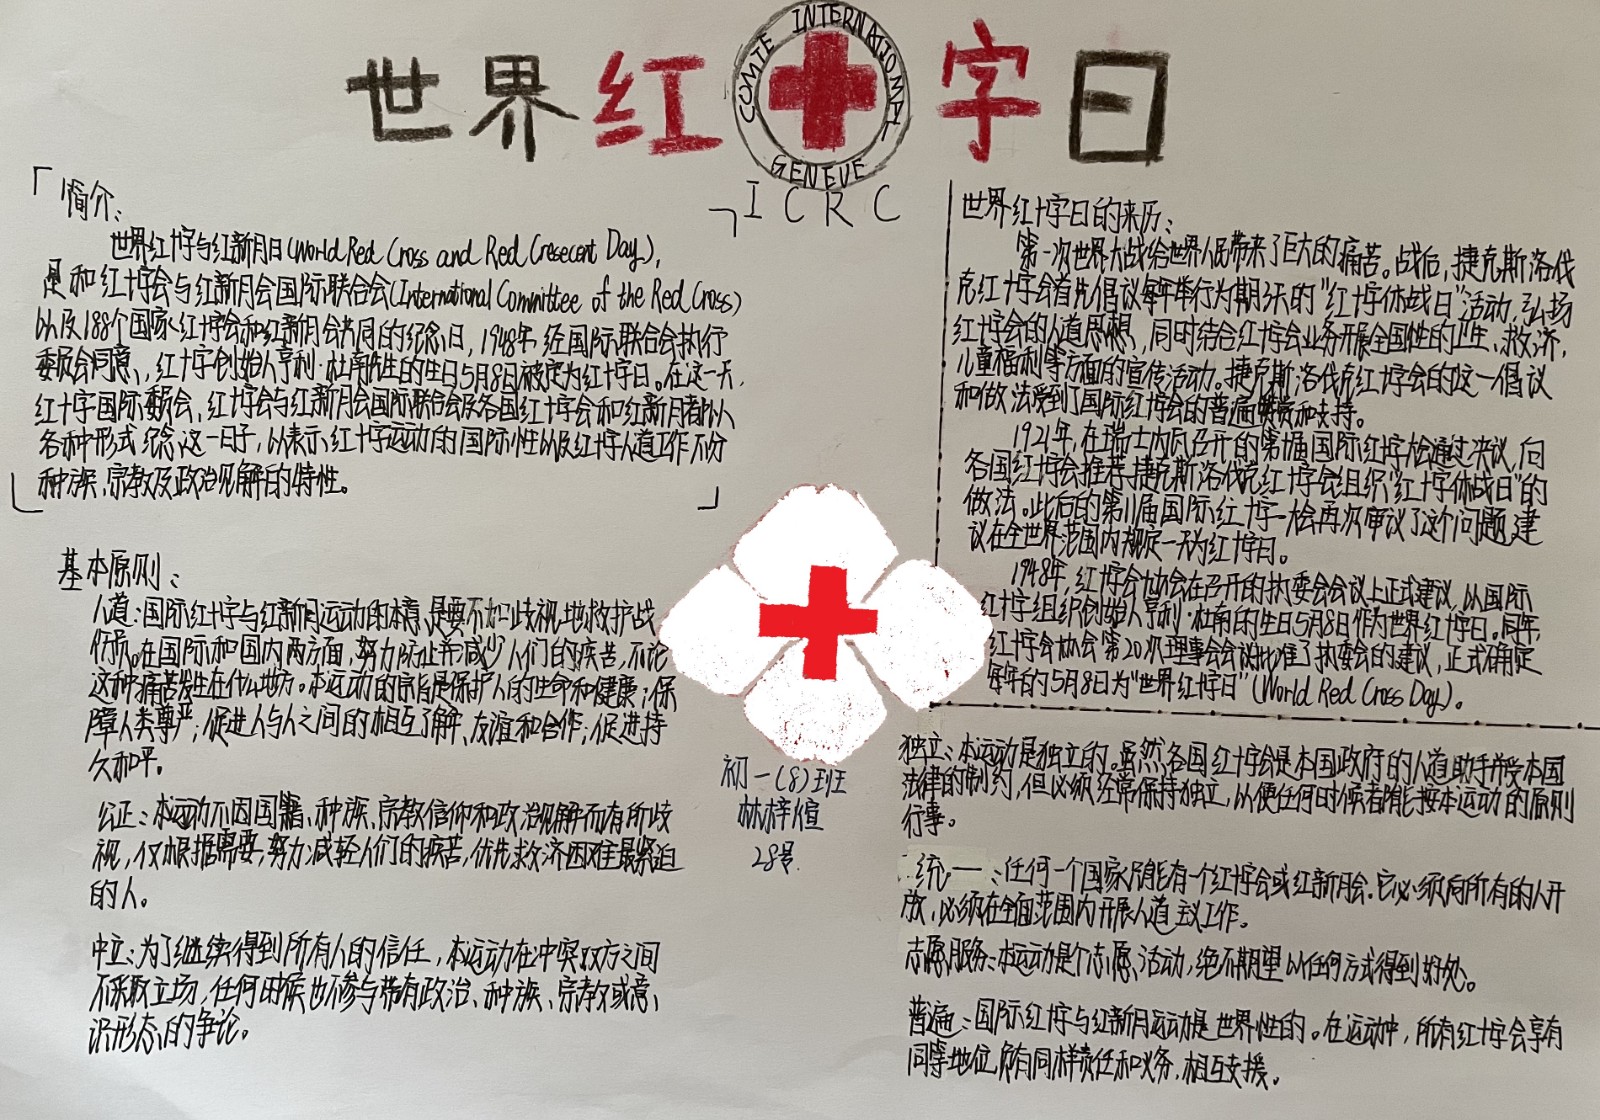 世界红十字日
COMITE INTERNATIONAL
GENEVE
ICRC
「简介：
世界红十字与红新月日(World Red Cross and Red Cresecent Day)，
是和红十字会与红新月会国际联合会(International Committee of the Red Cross)
以及188个国家红十字会和红新月会共同的纪念日，1948年经国际联合会执行
委员会同意，红十字创始人亨利·杜南先生的生日5月8日被定为红十字日。在这一天，
红十字国际委员会、红十字会与红新月会国际联合会及各国红十字会和红新月都以
各种形式纪念这一日子，以表示红十字运动的国际性以及红十字人道工作不分
种族、宗教及政治见解的特性。
基本原则：
人道：国际红十字与红新月运动的本意是要不加歧视地救护战
伤员。在国际和国内两方面，努力防止并减少人们的疾苦，不论
这种痛苦发生在什么地方。本运动的宗旨是保护人的生命和健康；保
障人类尊严；促进人与人之间的相互了解、友谊和合作；促进持
久和平。
公正：本运动不因国籍、种族、宗教信仰和政治见解而有所歧
视，仅根据需要，努力减轻人们的疾苦，优先救济困难最紧迫
的人。
中立：为了继续得到所有人的信任，本运动在冲突双方之间
不采取立场，任何时候也不参与带有政治、种族、宗教或意
识形态的争论。
初一(8)班
林梓煊
28号.
世界红十字日的来历：
第一次世界大战给世界人民带来了巨大的痛苦。战后，捷克斯洛伐
克红十字会首先倡议每年举行为期3天的“红十字休战日”活动，弘扬
红十字会的人道思想，同时结合红十字会业务开展全国性的卫生、救济，
儿童福利等方面的宣传活动。捷克斯洛伐克红十字会的这一倡议
和做法受到了国际红十字会的普遍赞赏和支持。
1921年，在瑞士内瓦召开的第十届国际红十字大会通过决议，向
各国红十字会推荐捷克斯洛伐克红十字会组织“红十字休战日”的
做法。此后的第11届国际红十字大会再次审议了这个问题，建
议在全世界范围内规定一天为红十字日。
1948年，红十字会协会在召开的执委会会议上正式建议，以国际
红十字组织创始人亨利·杜南的生日5月8日作为世界红十字日。同年，
红十字会协会第20次理事会会议批准了执委会的建议，正式确定
每年的5月8日为“世界红十字日”(World Red Cross Day)。
独立：本运动是独立的。虽然各国红十字会是本国政府的人道助手并受本国
法律的制约，但必须经常保持独立，以便任何时候都能按本运动的原则
行事。
统一：任何一个国家只能有一个红十字会或红新月会。它必须向所有的人开
放，必须在全国范围内开展人道主义工作。
志愿服务：本运动是个志愿活动，绝不期望以任何方式得到好处。
普遍：国际红十字与红新月运动是世界性的。在运动中，所有红十字会享有
同等地位，负有同样责任和义务，相互支援。